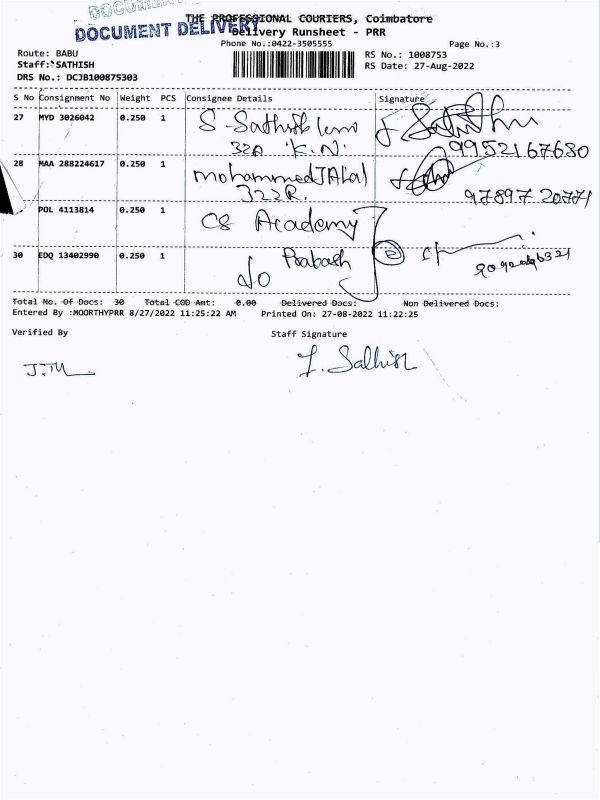 DOCUMENT
DOCUMENT DELIVERY
THE PROFESSIONAL COURIERS, Coimbatore
Delivery Runsheet - PRR
Phone No.:0422-3505555
Page No.:3
Route: BABU
RS No.: 1008753
Staff: SATHISH
RS Date: 27-Aug-2022
DRS No.: DCJB100875303
S No Consignment No Weight PCS Consignee Details Signature
27 MYD 3026042 0.250 1 S-Sathish
32A K.N. 9952167680
28 MAA 288224617 0.250 1 mohammed JALal
322R. 97897 20771
POL 4113814 0.250 1 CS Academy
30 EDQ 13402990 0.250 1 Prabash
Total No. Of Docs: 30 Total COD Amt: 0.00 Delivered Docs: Non Delivered Docs:
Entered By :MOORTHYPRR 8/27/2022 11:25:22 AM Printed On: 27-08-2022 11:22:25
Verified By Staff Signature
J. Sathish